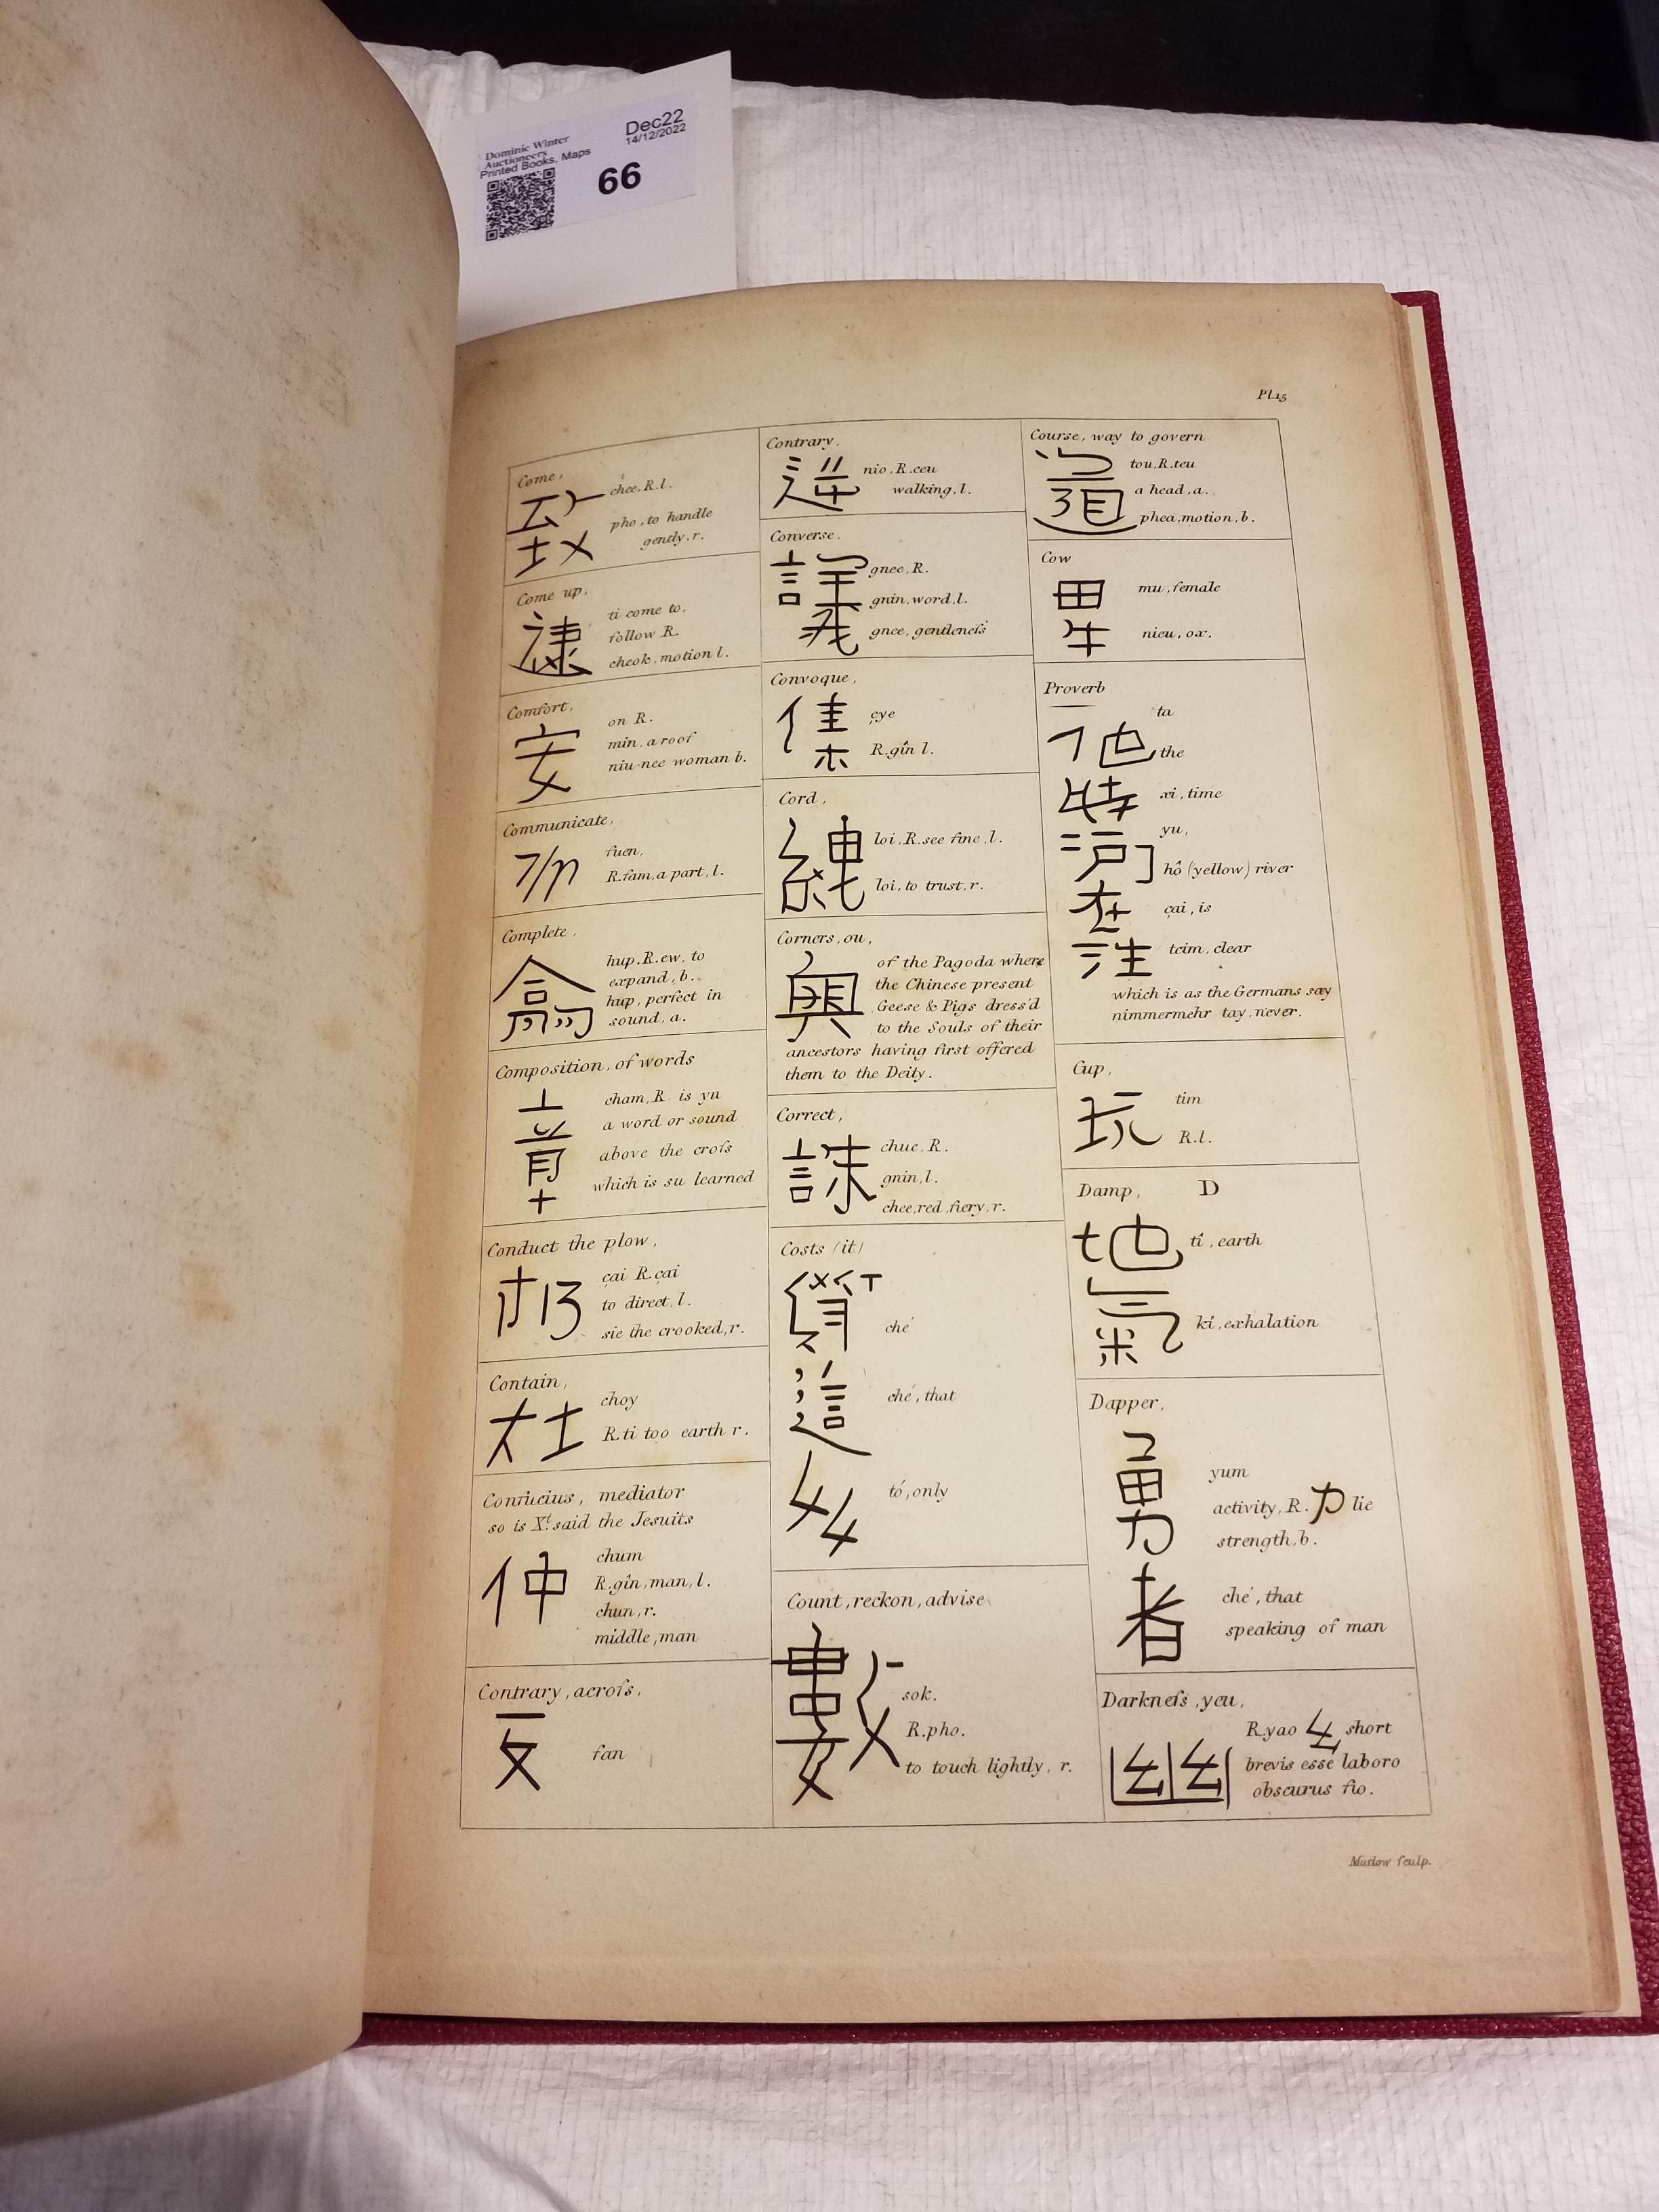 Dominic Winter
Auctioneers
Printed Books, Maps
Dec22
14/12/2022
66
Pl.15
Come,
chee, R.l.
pho, to handle
gently, r.
Come up,
逮
ti come to,
follow R.
cheok, motion l.
Comfort,
安
on R.
min, a roof
niu-nee woman b.
Communicate,
fuen,
R.fam, a part, l.
Complete,
hup, R. ew, to
expand, b.
hup, perfect in
sound, a.
Composition, of words
章
cham, R. is yu
a word or sound
above the croſs
which is su learned
Conduct the plow,
çai R.çai
to direct, l.
sie the crooked, r.
Contain,
杜
choy
R.ti too earth r.
Confucius, mediator
so is Xt. said the Jesuits
仲
chum
R.gîn, man, l.
chun, r.
middle, man
Contrary, acroſs,
反
fan
Contrary,
逆
nio, R.ceu
walking, l.
Converse,
議
gnee, R.
gnin, word, l.
gnee, gentleneſs
Convoque,
çye
R.gîn l.
Cord,
loi, R.see fine, l.
loi, to trust, r.
Corners, ou,
奧
of the Pagoda where
the Chinese present
Geese & Pigs dress'd
to the Souls of their
ancestors having first offered
them to the Deity.
Correct,
誅
chue, R.
gnin, l.
chee, red fiery, r.
Costs (it)
ché
這
ché, that
tó, only
Count, reckon, advise
數
sok.
R.pho.
to touch lightly, r.
Course, way to govern
道
tou, R.teu
a head, a.
phea, motion, b.
Cow
mu, female
牛
nieu, ox.
Proverb
他
ta
the
時
xi, time
yu,
河
hô (yellow) river
在
çai, is
tcim, clear
which is as the Germans say
nimmermehr tay, never.
Cup,
玩
tim
R.l.
D
Damp,
地
tí, earth
氣
kí, exhalation
Dapper,
勇
yum
activity, R. 力 lie
strength, b.
者
ché, that
speaking of man
Darkneſs, yeu,
幽
R.yao 幺 short
brevis esse laboro
obscurus fio.
Mutlow ſculp.